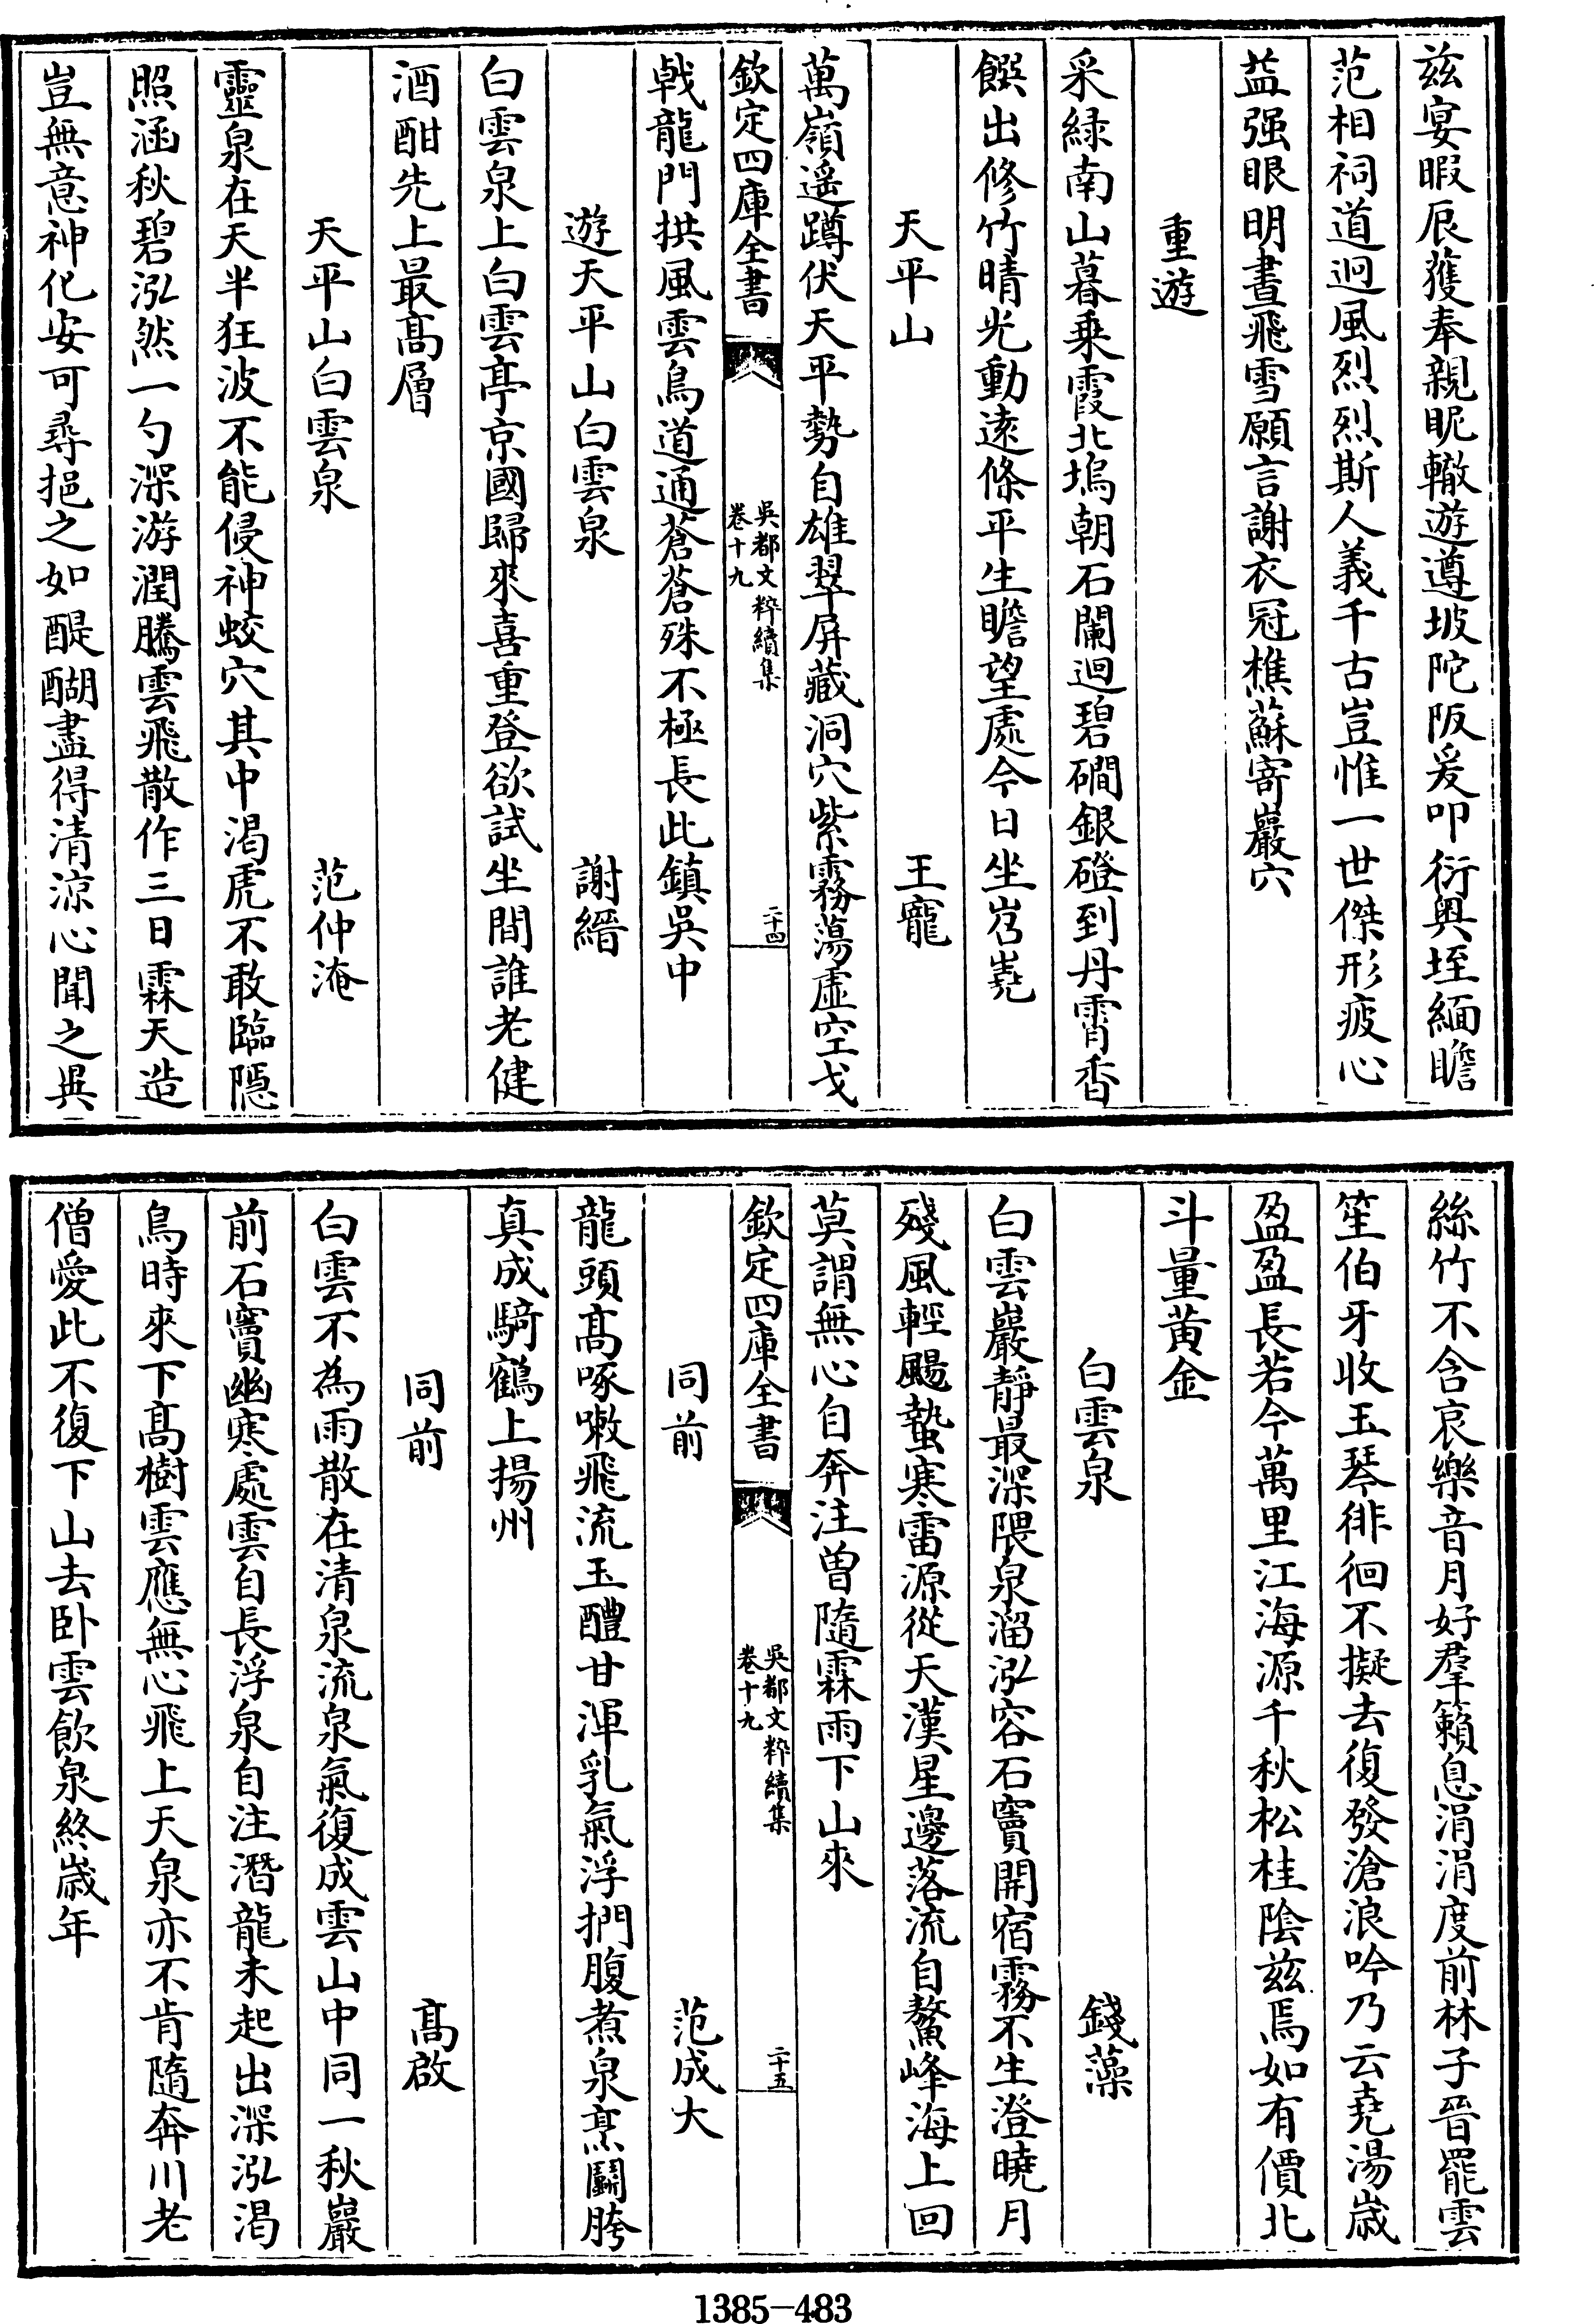 兹宴暇辰獲奉親昵轍遊遵坡陀阪爰叩衍輿垤緬瞻
范相祠道迥風烈烈斯人義千古豈惟一世傑形疲心
益强眼明晝飛雪願言謝衣冠樵蘇寄巖穴
重遊
采緑南山暮乗霞北塢朝石闌迴碧磵銀磴到丹霄香
饌出修竹晴光動遠條平生瞻望處今日坐岧嶤
天平山 王寵
萬嶺遥蹲伏天平勢自雄翠屏藏洞穴紫霧蕩虛空戈
欽定四庫全書 吳都文粹續集 卷十九 二十四
戟龍門拱風雲鳥道通蒼蒼殊不極長此鎮吳中
遊天平山白雲泉 謝縉
白雲泉上白雲亭京國歸來喜重登欲試坐間誰老健
酒酣先上最髙層
天平山白雲泉 范仲淹
靈泉在天半狂波不能侵神蛟穴其中渴虎不敢臨隱
照涵秋碧泓然一勺深游潤騰雲飛散作三日霖天造
豈無意神化安可尋挹之如醍醐盡得清涼心聞之異
絲竹不含哀樂音月好羣籟息涓涓度前林子晉罷雲
笙伯牙收玉琴徘徊不擬去復發滄浪吟乃云堯湯嵗
盈盈長若今萬里江海源千秋松桂陰兹焉如有價北
斗量黄金
白雲泉 錢藻
白雲巖靜最深隈泉溜泓容石竇開宿霧不生澄曉月
殘風輕颺蟄寒雷源從天漢星邊落流自鰲峰海上回
莫謂無心自奔注曽隨霖雨下山來
欽定四庫全書 吳都文粹續集 卷十九 二十五
同前 范成大
龍頭髙啄嗽飛流玉醴甘渾乳氣浮捫腹煮泉烹鬭胯
真成騎鶴上揚州
同前 髙啟
白雲不為雨散在清泉流泉氣復成雲山中同一秋巖
前石竇幽寒處雲自長浮泉自注潛龍未起出深泓渴
鳥時來下髙樹雲應無心飛上天泉亦不肯隨奔川老
僧愛此不復下山去卧雲飲泉終嵗年
1385—483